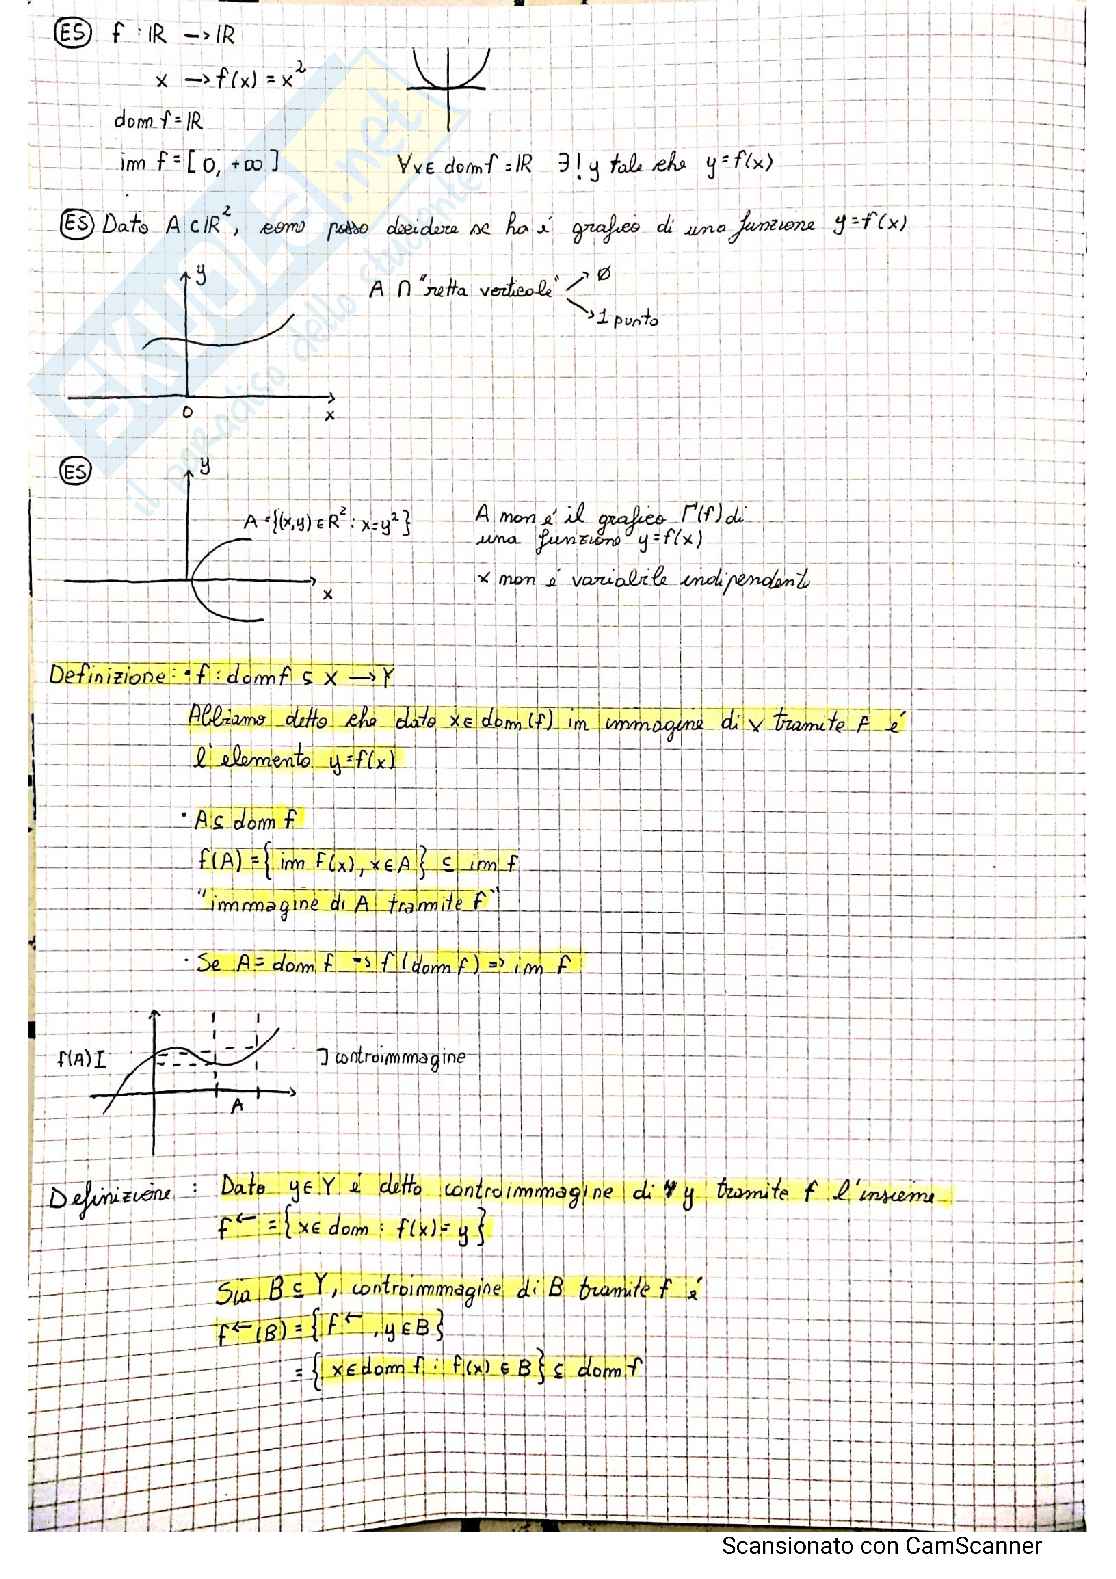 ES f : ℝ → ℝ
x → f(x) = x²
dom f = ℝ
im f = [0, +∞] ∀x ∈ dom f = ℝ ∃! y tale che y = f(x)
ES Dato A ⊂ ℝ², come posso decidere se ho i grafico di una funzione y = f(x)
y
A ∩ "retta verticale" ∅
1 punto
0
x
ES
y
A = {(x,y) ∈ R² : x = y²}
A non é il grafico Γ(f) di
una funzione y = f(x)
x
x non é variabile indipendente
Definizione: • f : dom f ⊆ X → Y
Abbiamo detto che dato x ∈ dom (f) im immagine di x tramite f é
l'elemento y = f(x)
• A ⊆ dom f
f(A) = { im f(x), x ∈ A } ⊆ im f
"immagine di A tramite f"
• Se A = dom f → f (dom f) => im f
f(A) I
controimmagine
A
Definizione : Dato y ∈ Y é detto controimmagine di y tramite f l'insieme
f← = { x ∈ dom : f(x) = y }
Sia B ⊆ Y, controimmagine di B tramite f é
f←(B) = { f← , y ∈ B }
= { x ∈ dom f : f(x) ∈ B } ⊆ dom f
SKUOLA.net
il paradiso dello studente
Scansionato con CamScanner